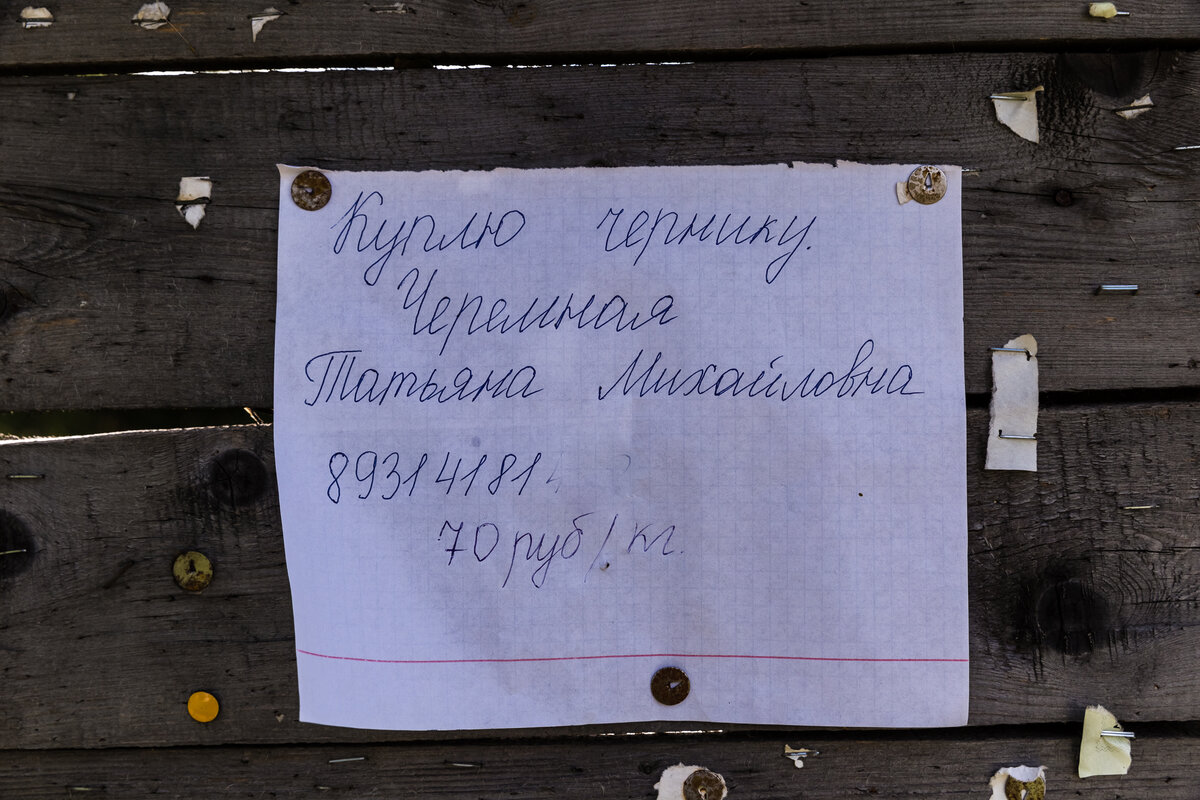 Куплю чернику.
Черемная
Татьяна Михайловна
893141814
70 руб/кг.